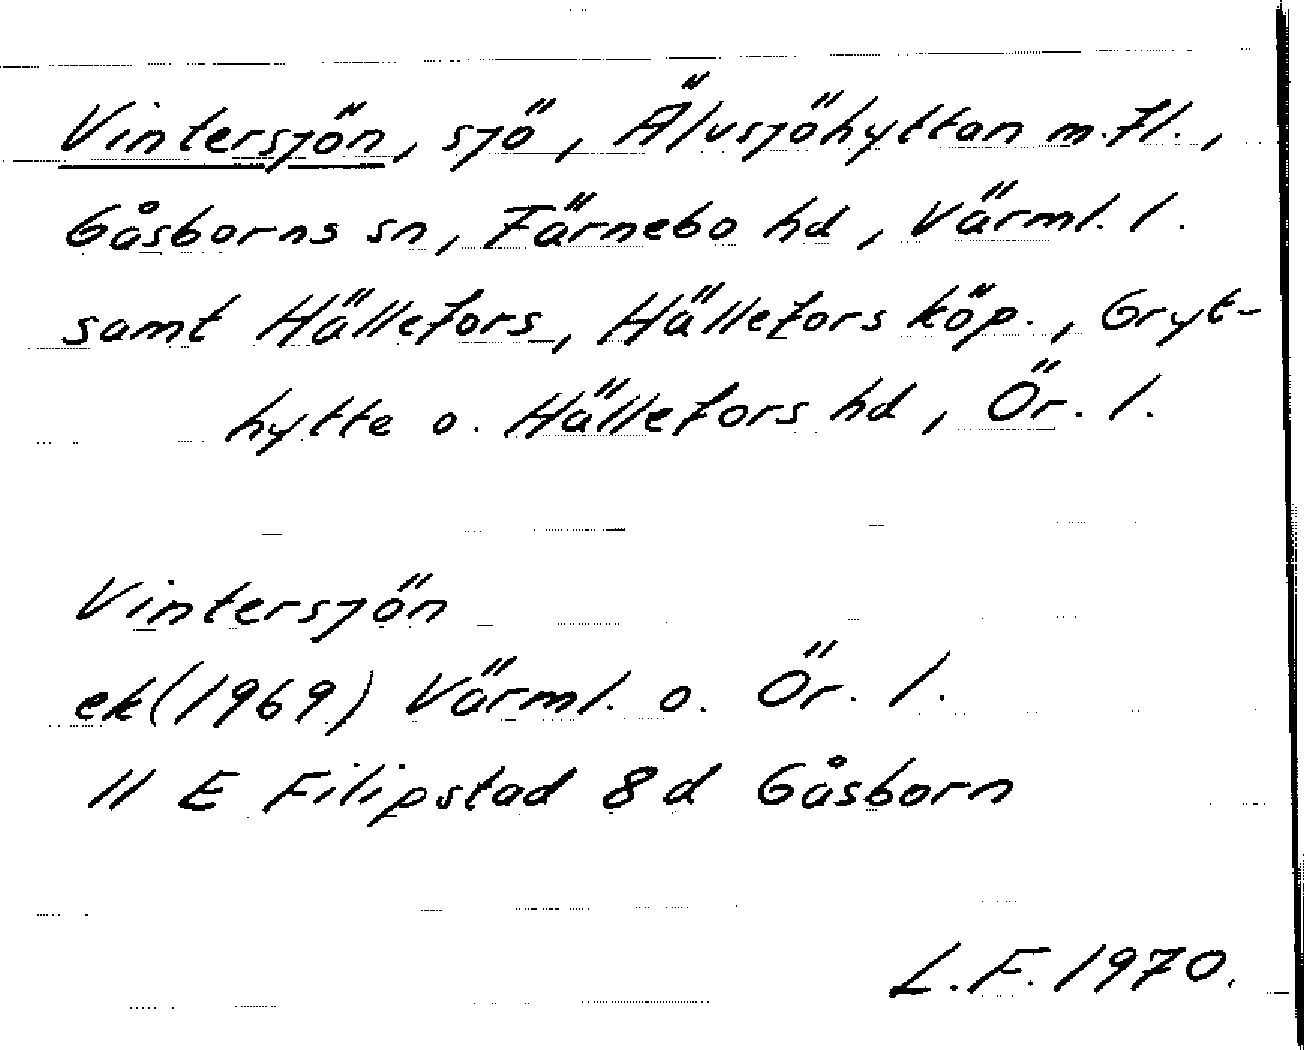 Vintersjön, sjö, Älvsjöhyttan m.fl.,
Gåsborns sn, Färnebo hd, Värml. l.
samt Hällefors, Hällefors köp., Gryt-
hytte o. Hällefors hd, Ör. l.
Vintersjön
ek(1969) Värml. o. Ör. l.
11 E Filipstad 8 d Gåsborn
L.F. 1970.